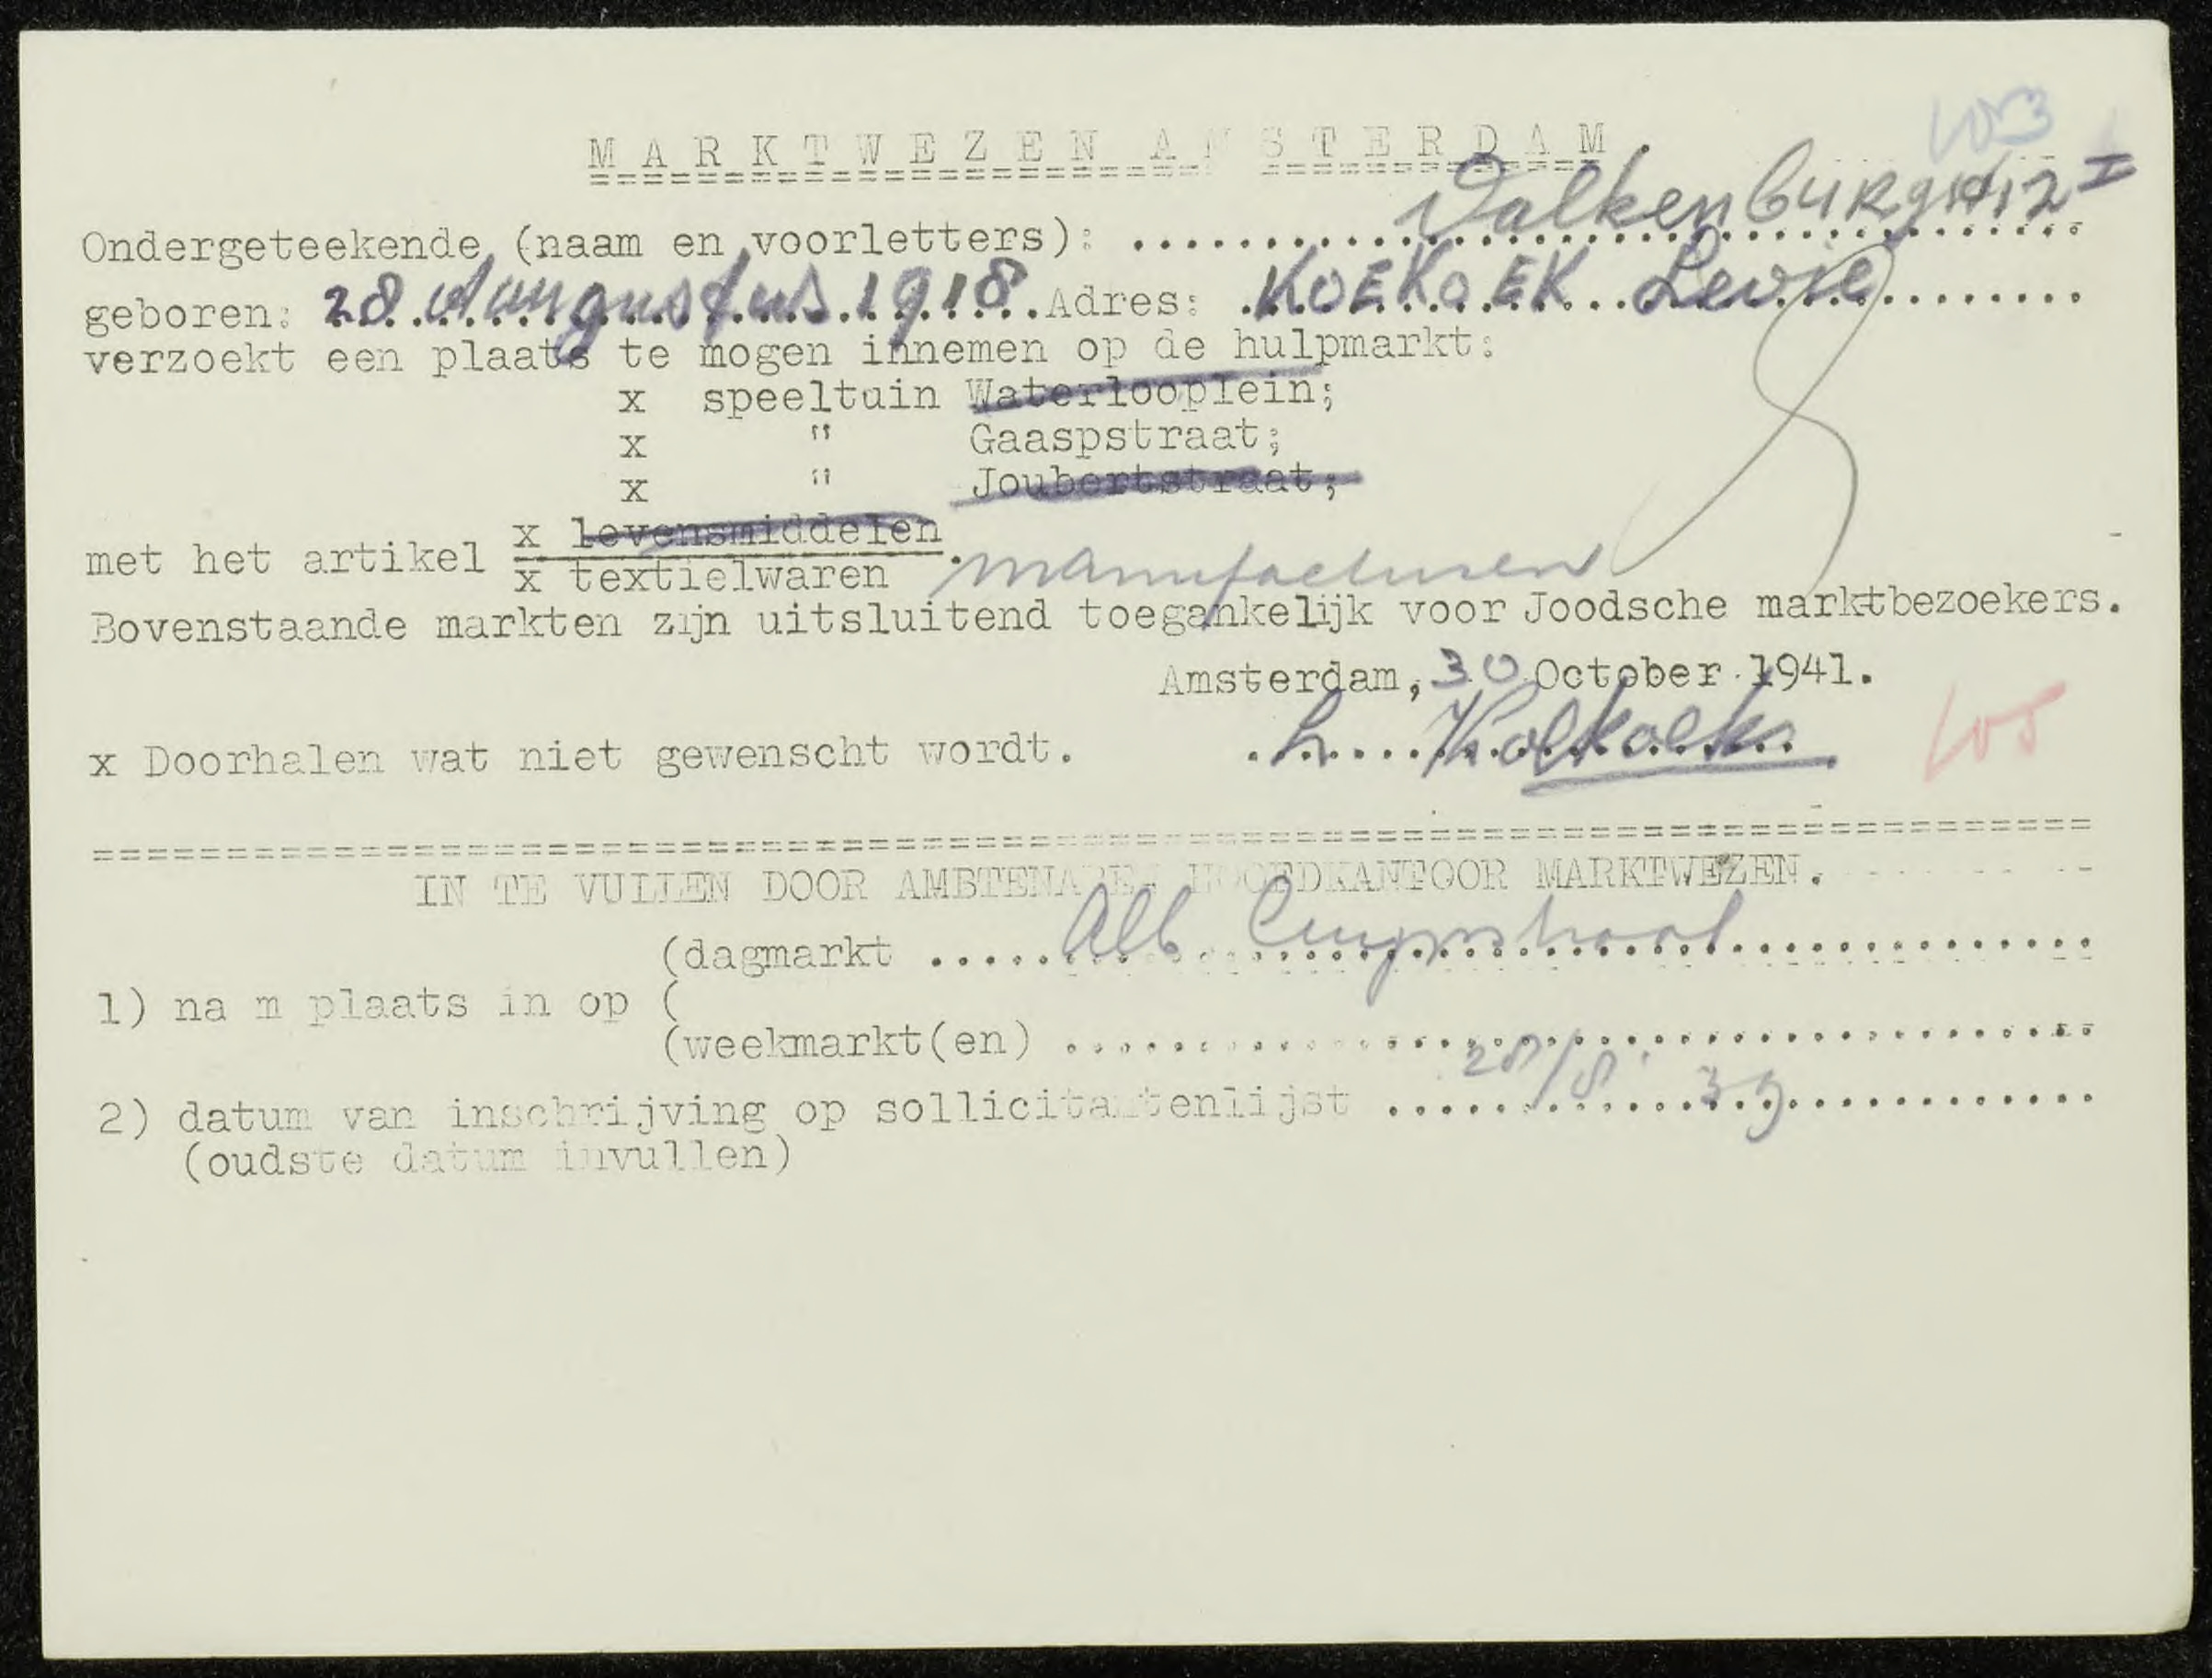 103
MARKTWEZEN AMSTERDAM.
Valkenburgst 12 I
Ondergeteekende (naam en voorletters): ....................
geboren: 28 Aungustus 1918. Adres: KOEKOEK Levie
verzoekt een plaats te mogen innemen op de hulpmarkt:
x speeltuin Waterlooplein;
x " Gaaspstraat;
x " Joubertstraat;
met het artikel x levensmiddelen.
x textielwaren manufacturen
Bovenstaande markten zijn uitsluitend toegankelijk voor Joodsche marktbezoekers.
Amsterdam, 30 October 1941.
x Doorhalen wat niet gewenscht wordt. L. Koekoek
105
IN TE VULLEN DOOR AMBTENAREN HOOFDKANTOOR MARKTWEZEN.
(dagmarkt ..... Alb Cuypstraat
1) na m plaats in op (
(weekmarkt(en) ....................
2) datum van inschrijving op sollicitantenlijst ..... 28/8 39
(oudste datum invullen)